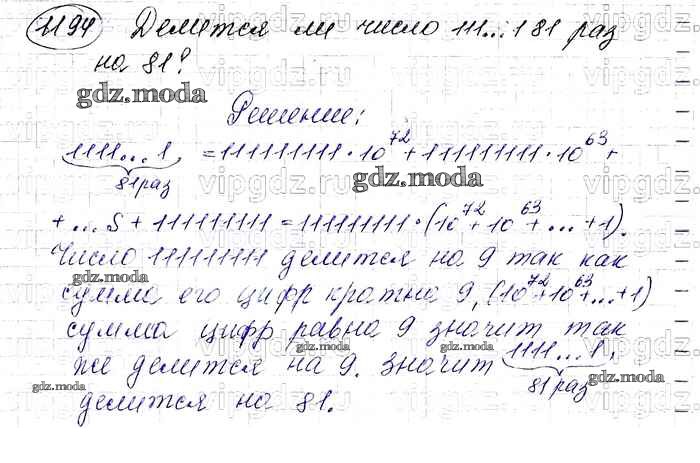 1194 Делится ли число 111...1 81 раз
на 81?
gdz.moda
Решение:
1111...1 = 111111111·10^72 + 111111111·10^63 +
81 раз
gdz.moda
+ ... S + 111111111 = 111111111·(10^72 + 10^63 + ... + 1).
Число 111111111 делится на 9 так как
gdz.moda
сумма его цифр кратна 9, (10^72 + 10^63 + ... + 1)
сумма цифр равна 9 значит так
же делится на 9. значит 1111...1,
gdz.moda gdz.moda gdz.moda
81 раз
делится на 81.